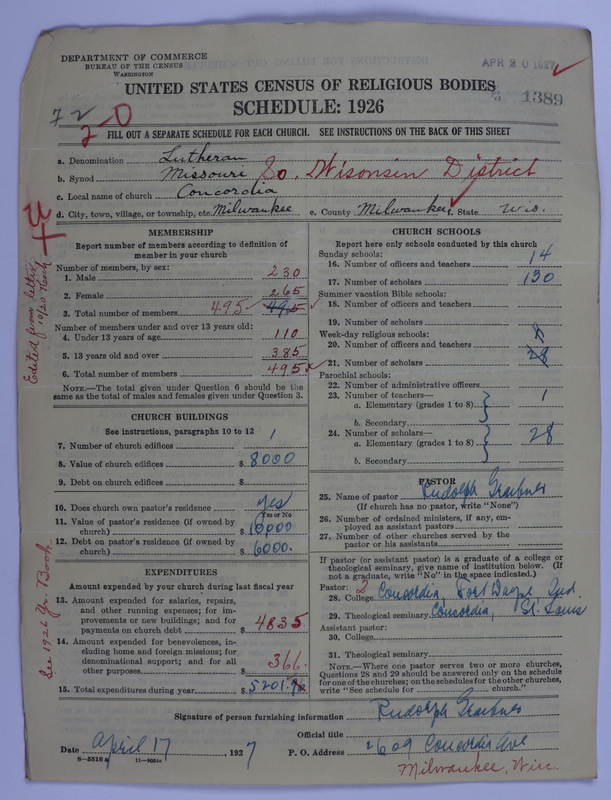 DEPARTMENT OF COMMERCE
BUREAU OF THE CENSUS
WASHINGTON
APR 20 1927
UNITED STATES CENSUS OF RELIGIOUS BODIES
SCHEDULE: 1926
1389
72
2-0
FILL OUT A SEPARATE SCHEDULE FOR EACH CHURCH. SEE INSTRUCTIONS ON THE BACK OF THIS SHEET
a. Denomination Lutheran
b. Synod Missouri So. Wisonsin District
c. Local name of church Concordia
d. City, town, village, or township, etc. Milwaukee e. County Milwaukee f. State Wis.
MEMBERSHIP
Report number of members according to definition of member in your church
Number of members, by sex:
1. Male 230
2. Female 265
3. Total number of members 495 495
Number of members under and over 13 years old:
4. Under 13 years of age 110
5. 13 years old and over 385
6. Total number of members 495
NOTE.—The total given under Question 6 should be the same as the total of males and females given under Question 3.
CHURCH BUILDINGS
See instructions, paragraphs 10 to 12
7. Number of church edifices 1
8. Value of church edifices $8000
9. Debt on church edifices $
10. Does church own pastor's residence yes
Yes or No
11. Value of pastor's residence (if owned by church) $10,000
12. Debt on pastor's residence (if owned by church) $6000.
EXPENDITURES
Amount expended by your church during last fiscal year
13. Amount expended for salaries, repairs, and other running expenses; for improvements or new buildings; and for payments on church debt $4835
14. Amount expended for benevolences, including home and foreign missions; for denominational support; and for all other purposes $366.
15. Total expenditures during year $5201.
Edited from letter
See 1926 Yr. Book
CHURCH SCHOOLS
Report here only schools conducted by this church
Sunday schools:
16. Number of officers and teachers 14
17. Number of scholars 130
Summer vacation Bible schools:
18. Number of officers and teachers
19. Number of scholars
Week-day religious schools:
20. Number of officers and teachers
21. Number of scholars 28
Parochial schools:
22. Number of administrative officers
23. Number of teachers—
a. Elementary (grades 1 to 8) 1
b. Secondary
24. Number of scholars—
a. Elementary (grades 1 to 8) 28
b. Secondary
PASTOR
25. Name of pastor Rudolph Graebner
(If church has no pastor, write "None")
26. Number of ordained ministers, if any, employed as assistant pastors
27. Number of other churches served by the pastor or his assistants
If pastor (or assistant pastor) is a graduate of a college or theological seminary, give name of institution below. (If not a graduate, write "No" in the space indicated.)
Pastor: 2
28. College Concordia, Fort Wayne Ind.
29. Theological seminary Concordia, St. Louis
Assistant pastor:
30. College
31. Theological seminary
NOTE.—Where one pastor serves two or more churches, Questions 28 and 29 should be answered only on the schedule for one of the churches; on the schedules for the other churches, write "See schedule for church."
Signature of person furnishing information Rudolph Graebner
Official title
Date April 17, 1927 P. O. Address 2609 Concordia Ave
Milwaukee, Wis.
8-5518a